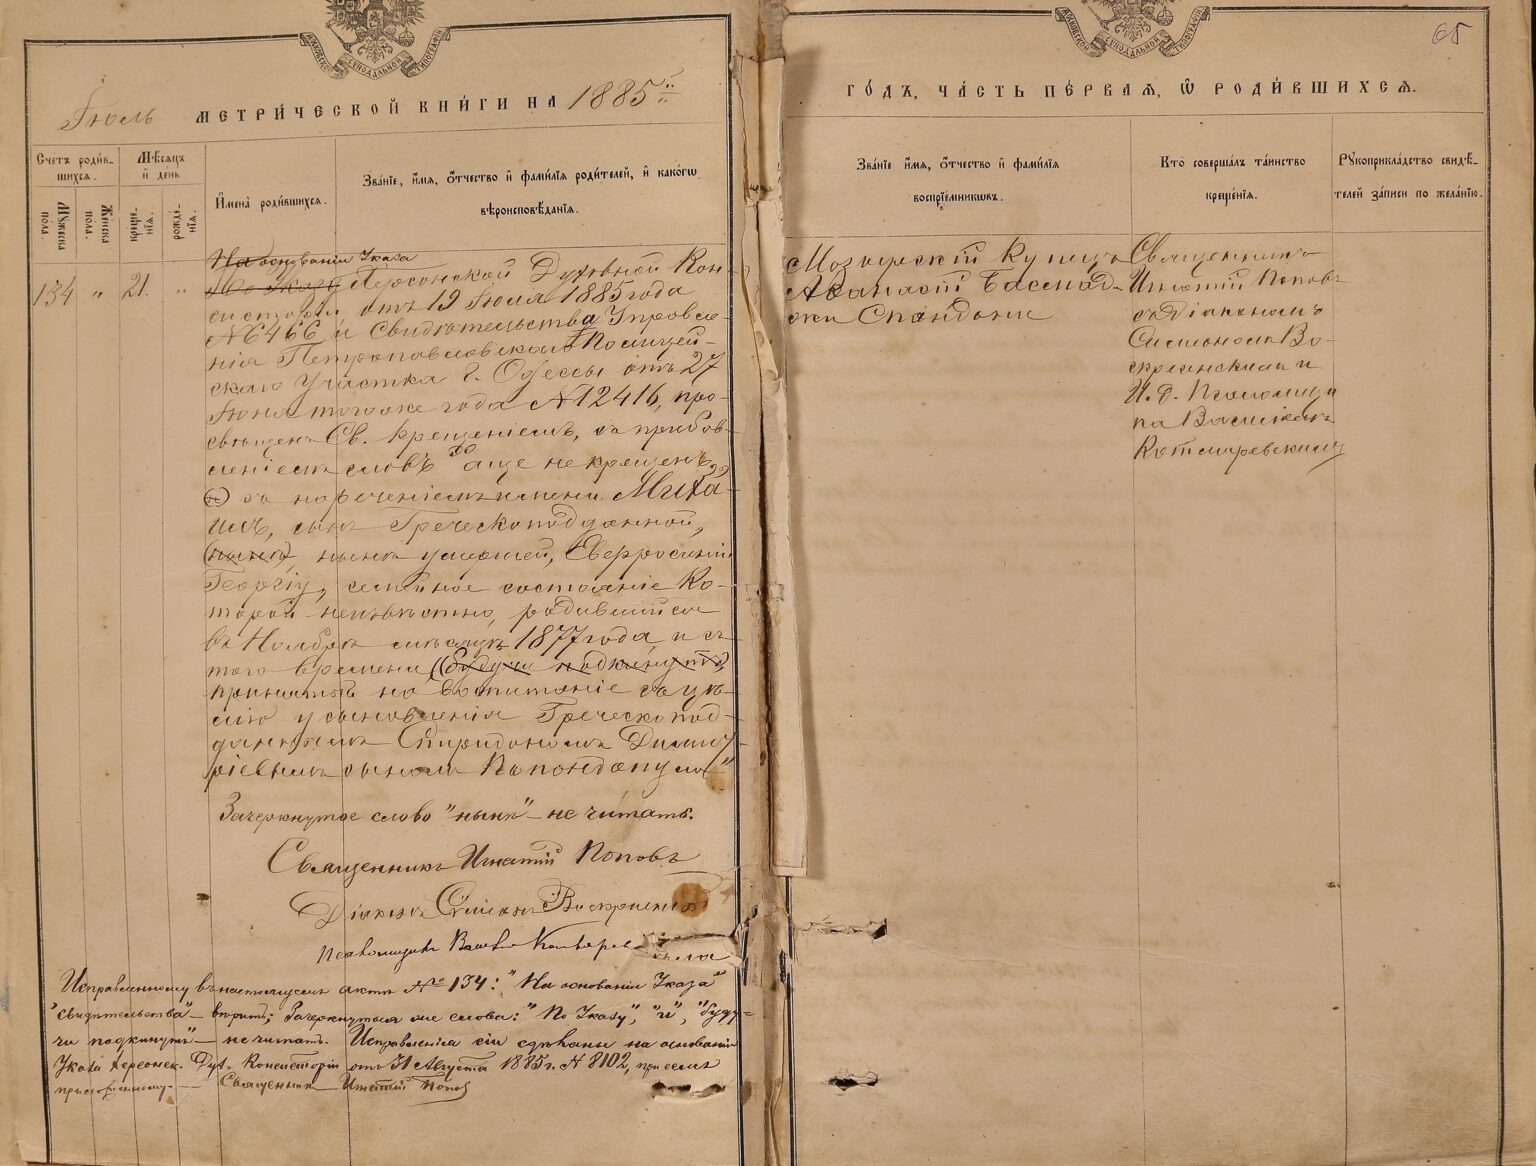 МОСКОВСКОЙ СУНОДАЛЬНОЙ ТИПОГРАФІИ
МОСКОВСКОЙ СУНОДАЛЬНОЙ ТИПОГРАФІИ
65
Іюль МЕТРИ́ЧЕСКОЙ КНИ́ГИ НА 1885й
ГО́ДЪ, ЧА́СТЬ ПЕ́РВАЯ, Ѡ РОДИ́ВШИХСЯ.
Счетъ роди́в-
шихся.
Мѣ́сяцъ
и҆ день
Мꙋжеска
пола̀.
Же́нска
пола̀.
креще́-
нїѧ.
рожде́-
нїѧ.
И҆мена̀ роди́вшихся.
Зва́нїе, и҆́мѧ, ѻ҆́тчество и҆ фами́лїѧ роди́телей, и҆ како́гѡ
вѣроисповѣ́данїѧ.
Зва́нїе и҆́мѧ, ѻ҆́тчество и҆ фами́лїѧ
воспрїе́мникѡвъ.
Кто̀ соверша́лъ та́инство
креще́нїѧ.
Рꙋкоприкла́дство свидѣ́-
телей за́писи по жела́нїю.
На основаніи Указа
134 " 21. " По Указу Херсонской Духовной Кон-
систоріи отъ 19 Іюля 1885 года
№ 6466 и Свидѣтельства Управле-
нія Петропавловскаго Полицей-
скаго Участка г. Одессы отъ 27
Іюня того же года № 12416, про-
свѣщенъ Св. Крещеніемъ, съ прибав-
леніемъ словъ "аще не крещенъ"
(и) съ нареченіемъ имени Миха-
илъ, сынъ Греческоподданной,
(нынѣ), нынѣ умершей, Евфросиніи
Георгіу, семейное состояніе Ко-
торой неизвѣстно, родившійся
въ Ноябрѣ мѣсяцѣ 1877 года, и съ
того времени (будучи подкинутъ)
принятъ на воспитаніе съ цѣ-
лію усыновленія Греческопод-
даннымъ Спиридономъ Димит-
ріевымъ сыномъ Папондопуло"
Зачеркнутое слово "нынѣ" – не читать.
Священникъ Игнатій Поповъ
Діаконъ Симеонъ Воскресенскій
Псаломщикъ
Мозырскій Купецъ
Аѳанасій
Спандони
Священникъ
Игнатій Поповъ
съ Діакономъ
Симеономъ Во-
скресенскимъ и
И. д. Псаломщи
ка Василіемъ
Котляревскимъ
Исправленному въ настоящемъ актѣ № 134: "На основаніи Указа"
"свидѣтельства" – вѣрить; Зачеркнутыя же слова: "По Указу", "и", "буду-
чи подкинутъ" – не читать. Исправленія сіи сдѣланы на основаніи
Указа Херсонск. Дух. Консисторіи отъ 31 Августа 1885 г. № 8102, при семъ
приложенному. — Священникъ Игнатій Поповъ